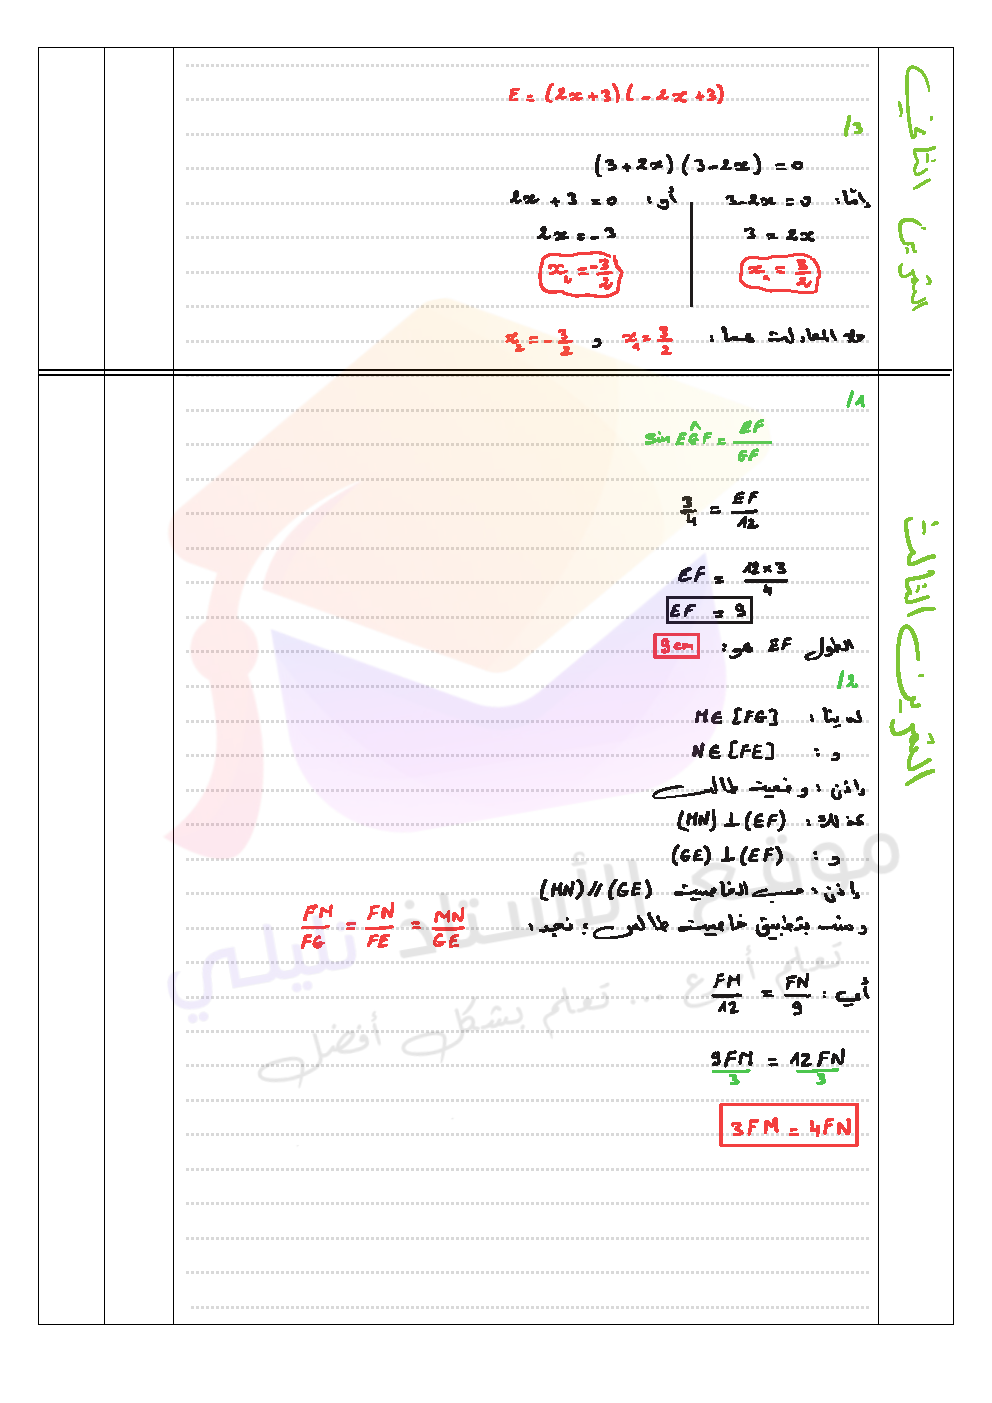 التمرين الثاني
E = (2x+3)(-2x+3)
/3
(3+2x)(3-2x) = 0
إمّا: 3-2x = 0 أو: 2x + 3 = 0
3 = 2x 2x = -3
x₁ = 3/2 x₂ = -3/2
حلا المعادلة هما: x₁ = 3/2 و x₂ = -3/2
التمرين الثالث
/1
sin EĜF = EF/GF
3/4 = EF/12
EF = 12×3/4
EF = 9
الطول EF هو: 9cm
/2
لدينا: M∈[FG]
و: N∈[FE]
إذن: وضعية طالس
كذلك: (MN)⊥(EF)
و: (GE)⊥(EF)
إذن: حسب الخاصية (MN)//(GE)
ومنه بتطبيق خاصية طالس؛ نجد: FM/FG = FN/FE = MN/GE
أي: FM/12 = FN/9
9FM/3 = 12FN/3
3FM = 4FN
موقع الأستاذ نيلي
تعلم أسرع ... تعلم بشكل أفضل